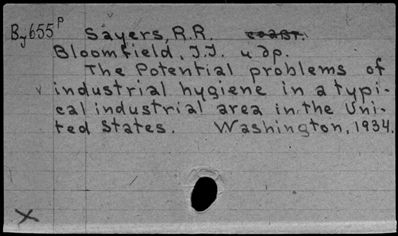 By655P Sayers, R.R. соавт.
Bloomfield, J.J. и др.
The Potential problems of
industrial hygiene in a typi-
cal industrial area in the Uni-
ted States. Washington, 1934.